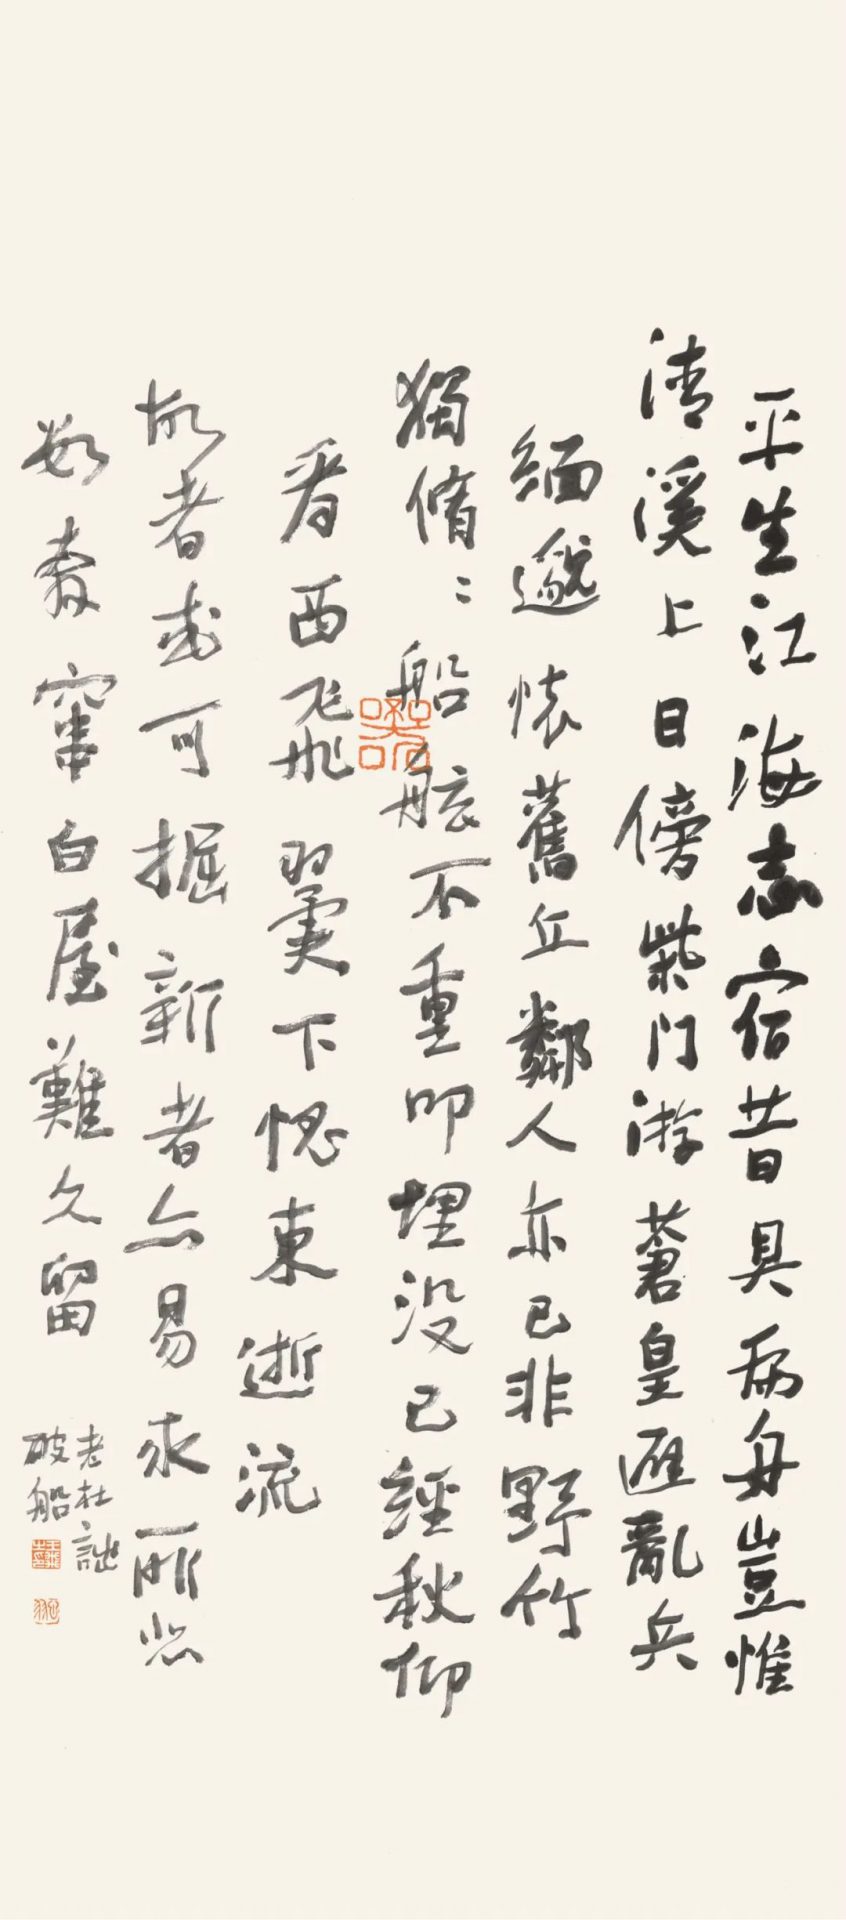 平生江海志宿昔具扁舟豈惟
清溪上日傍柴门游蒼皇避亂兵
緬邈懷舊丘鄰人亦已非野竹
獨脩〻船舷不重叩埋没已經秋仰
看西飛翼下愧東逝流
故者或可掘新者亦易求所悲
數奔竄白屋難久留
老杜詩
破船